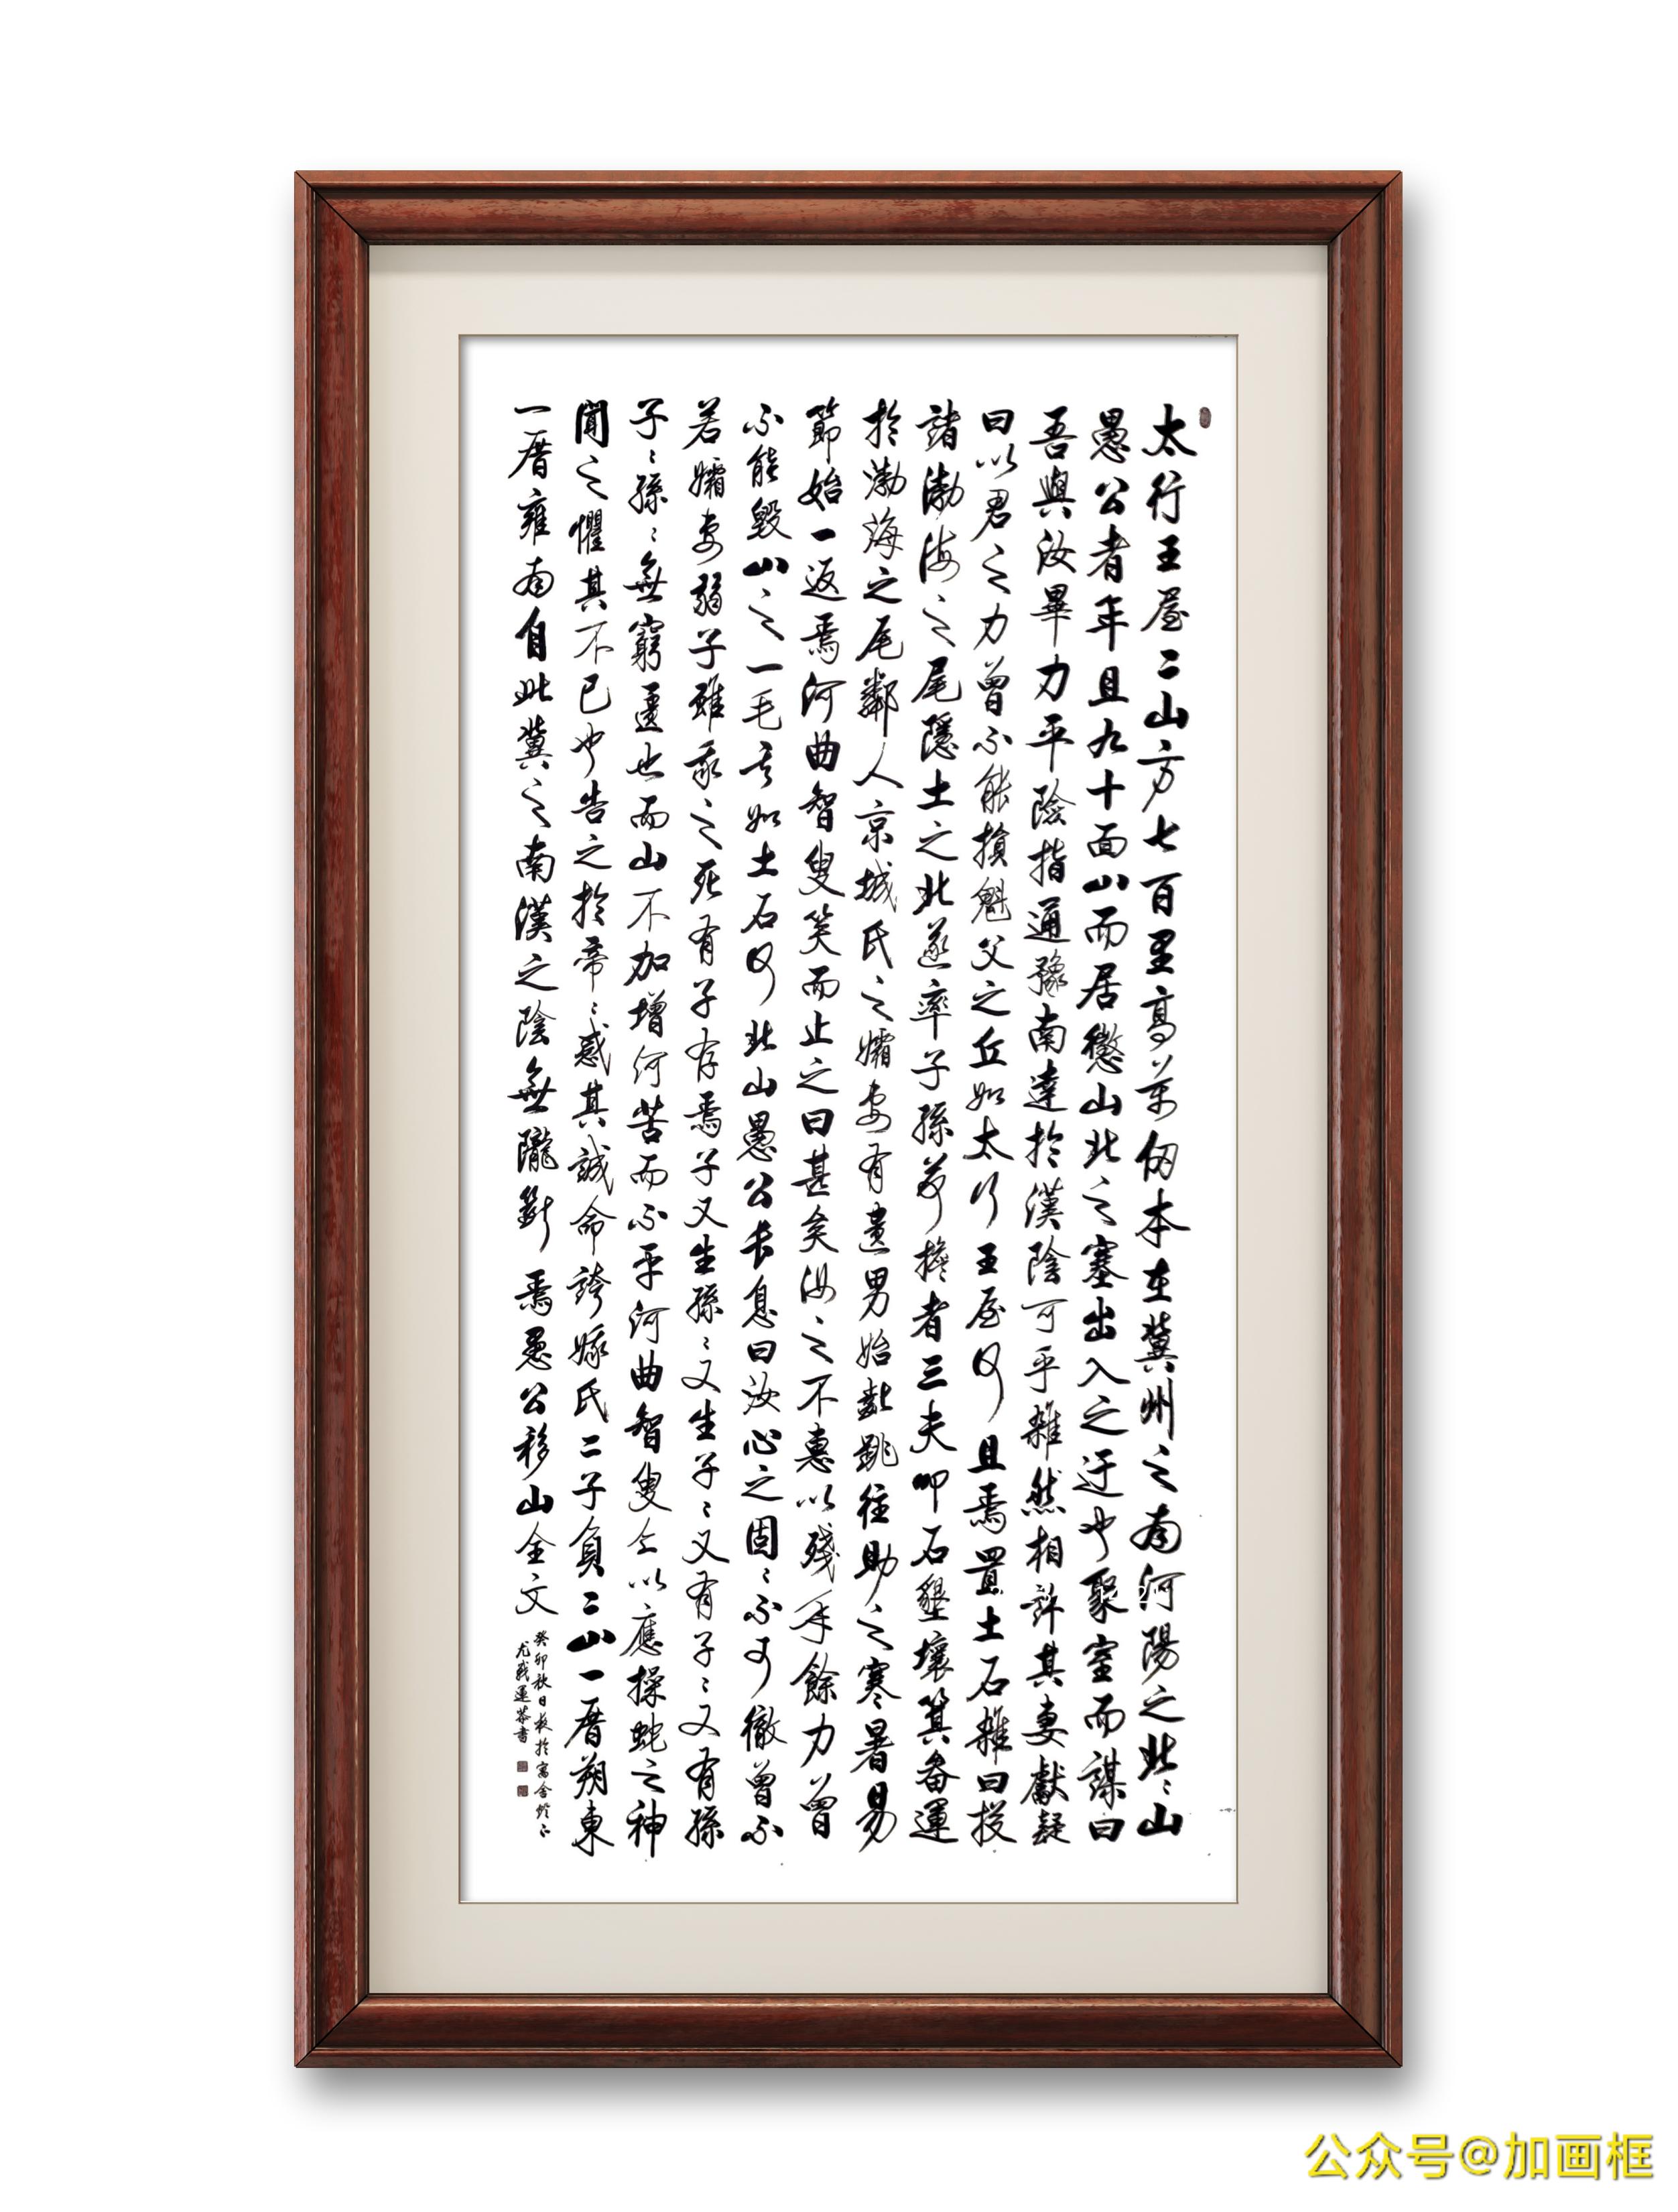 太行王屋二山方七百里高萬仞本在冀州之南河陽之北〻山
愚公者年且九十面山而居懲山北之塞出入之迂也聚室而謀曰
吾與汝畢力平險指通豫南達於漢陰可乎雜然相許其妻獻疑
曰以君之力曾不能損魁父之丘如太行王屋何且焉置土石雜曰投
諸渤海之尾隱土之北遂率子孫荷擔者三夫叩石墾壤箕畚運
於渤海之尾鄰人京城氏之孀妻有遺男始齔跳往助之寒暑易
節始一返焉河曲智叟笑而止之曰甚矣汝之不惠以殘年餘力曾
不能毀山之一毛其如土石何北山愚公長息曰汝心之固〻不可徹曾不
若孀妻弱子雖我之死有子存焉子又生孫〻又生子〻又有子〻又有孫
子〻孫〻無窮匱也而山不加增何苦而不平河曲智叟亡以應操蛇之神
聞之懼其不已也告之於帝〻感其誠命誇娥氏二子負二山一厝朔東
一厝雍南自此冀之南漢之陰無隴斷焉愚公移山全文
癸卯秋日於寓舍燈下
運恭書
公众号@加画框